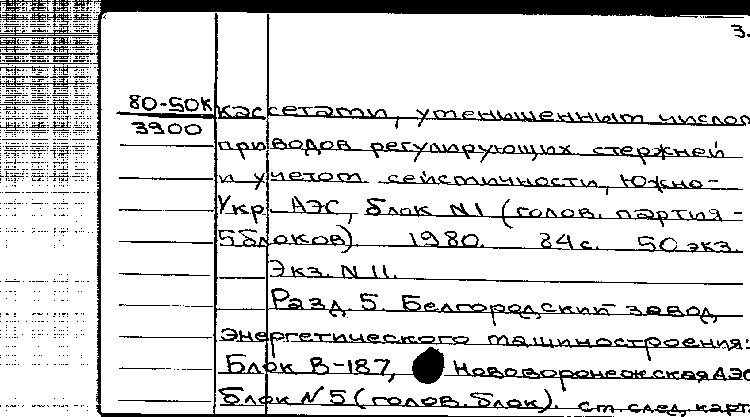 3.
80-50к
3900
кассетами, уменьшенным числом
приводов регулирующих стержней
и учетом сейсмичности, Южно-
Укр. АЭС, блок N1 (голов. партия -
5блоков). 1980. 84с. 50экз.
Экз. N 11.
Разд. 5. Белгородский завод
энергетического машиностроения:
Блок В-187, Нововоронежская АЭС
блок N5 (голов. блок). см. след. карт